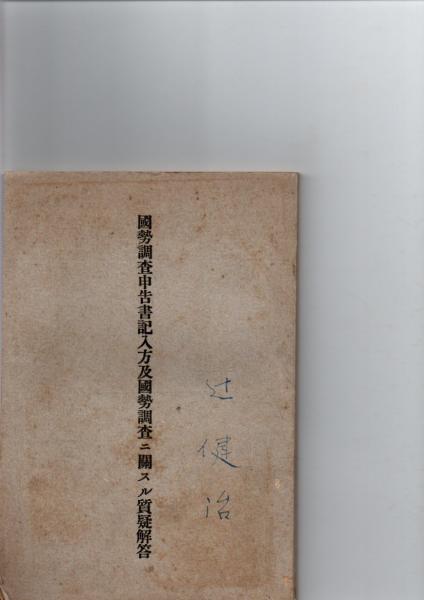 國勢調査申告書記入方及國勢調査ニ關スル質疑解答
辻健治